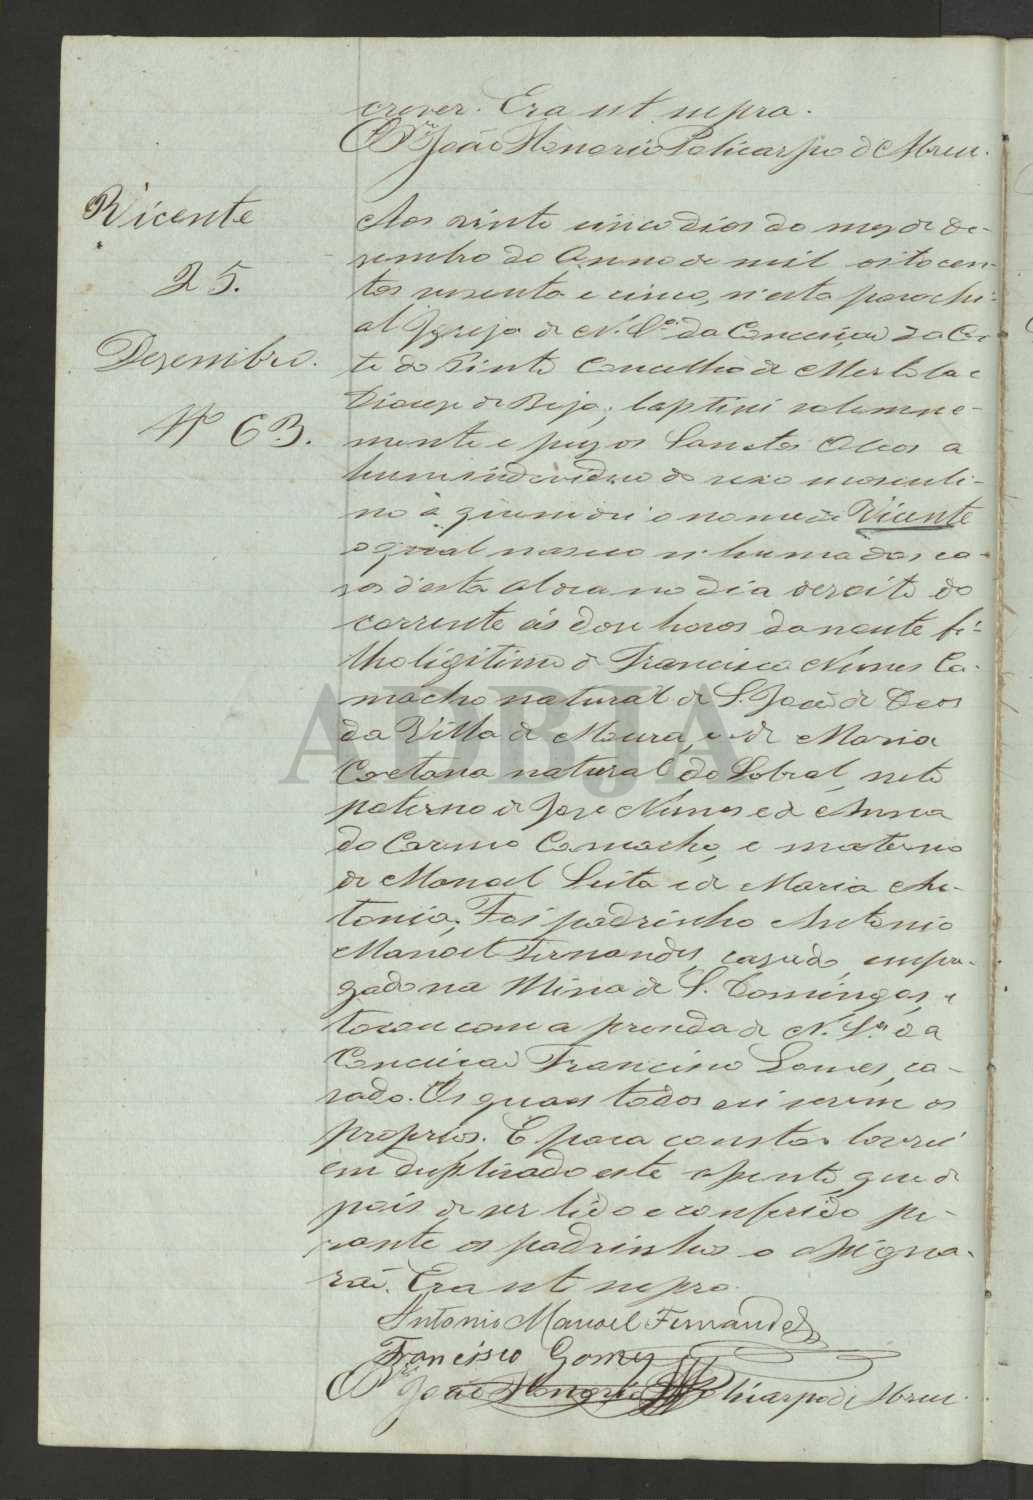 crever. Era ut supra.
O Pr. João Honorio Policarpo d'Abreu.
Vicente
25.
Dezembro.
Nº 63.
Aos vinte cinco dias do mez de De-
zembro do Anno de mil oitocen-
tos sesenta e cinco, n'esta parochi-
al Igreja de N. Sª. da Conceição da Cor-
te do Pinto Concelho de Mertola e
Diocese de Beja; baptizei solemne-
mente e puz os Sanctos Oleos a
hum individuo do sexo masculi-
no à quem dei o nome de Vicente
o qual nasceu n'huma das ca-
sas d'esta aldea no dia desoito do
corrente ás dose horas da noute fi-
lho ligitimo de Francisco Nunes Ca-
macho natural de S. João de Deos
da Villa de Moura, e de Maria
Caetana natural do Sobral, neto
paterno de Jose Nunes e de Anna
do Carmo Camacho, e materno
de Manoel Leita e de Maria An-
tonia; Foi padrinho Antonio
Manoel Fernandes, casado, empre-
gado na Mina de S. Domingos, e
tocou com a prenda de N. Sª da
Conceicão Francisco Gomes, ca-
sado. Os quaes todos sei serem os
proprios. E para constar lavrei
em duplicado este assento, que de
pois de ser lido e conferido pe-
rante os padrinhos o assigna-
rão. Era ut supra.
Antonio Manoel Fernandes
Francisco Gomes
O Pr. João Honorio Policarpo d'Abreu.
ADBJA